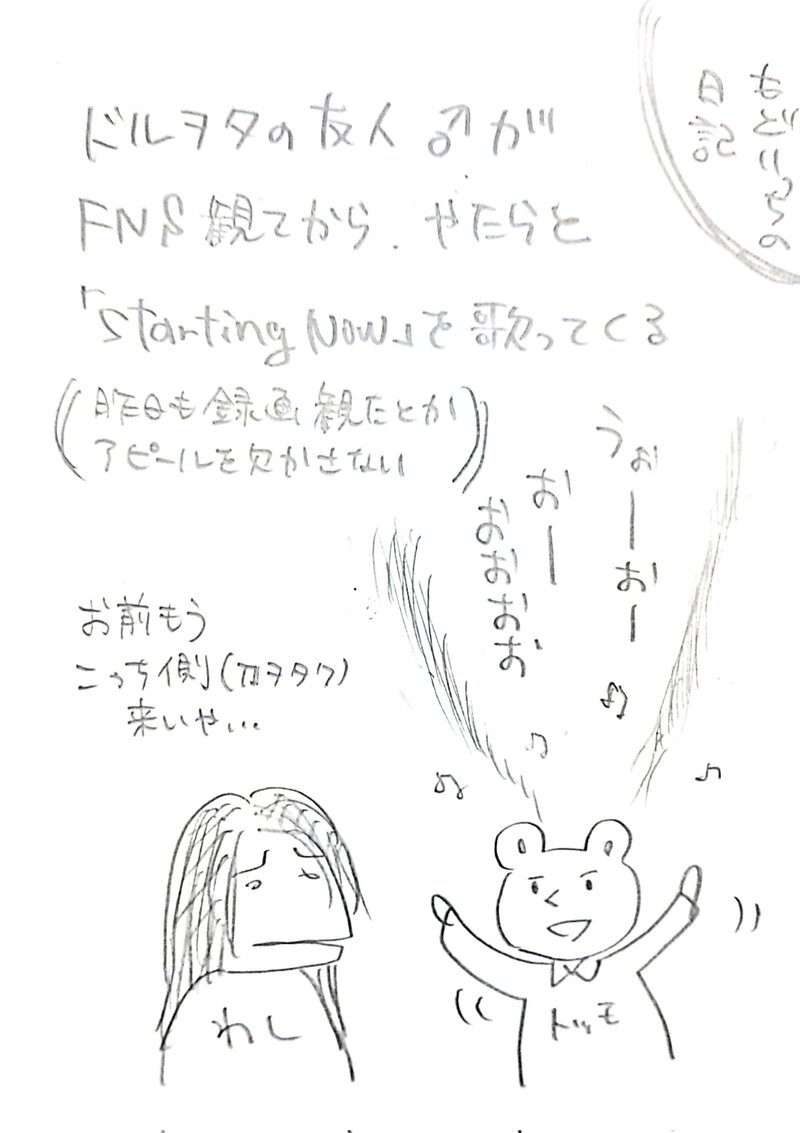 ドルヲタの友人♂が
FNS観てから、やたらと
「Starting Now」を歌ってくる
((昨日も録画観たとか
アピールを欠かさない))
うぉーおー
おー
おおおお
お前もう
こっち側(刀ヲタク)
来いや…
わし
トッモ
日記